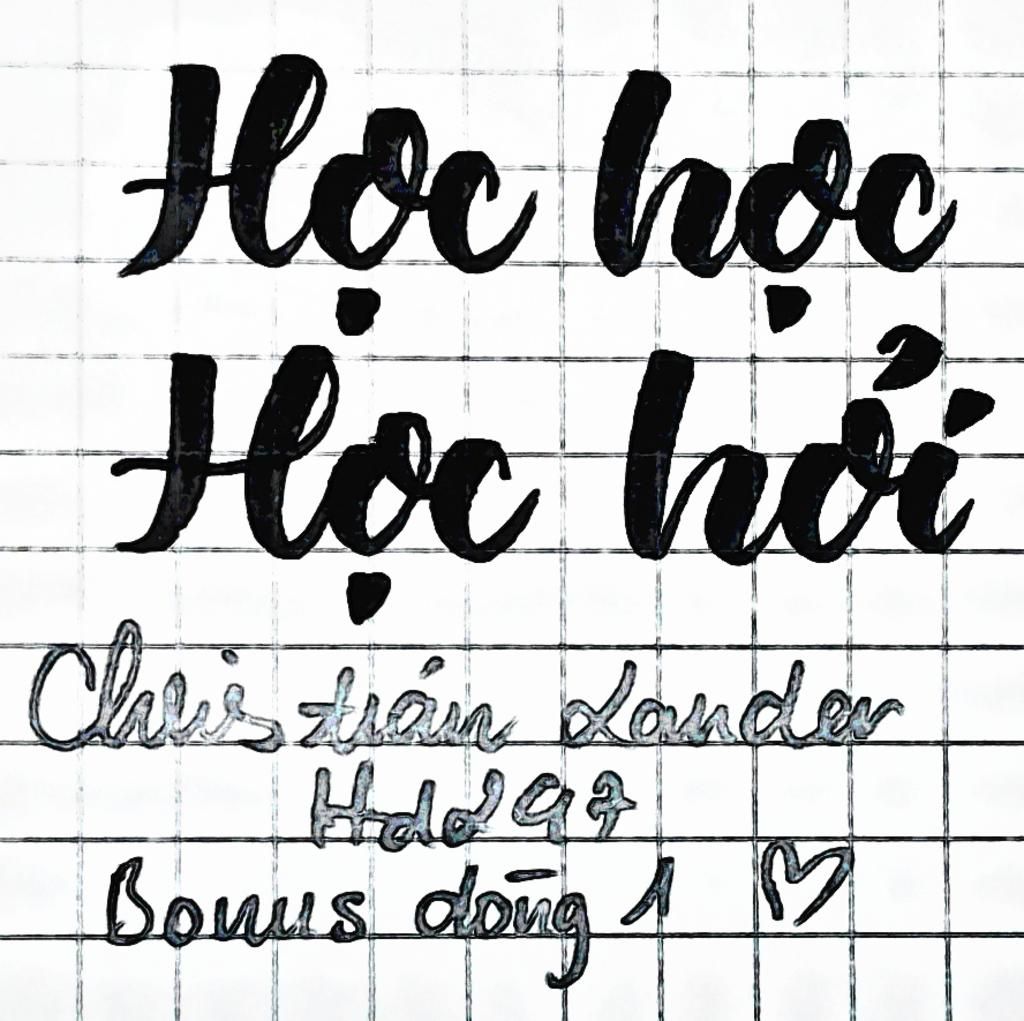 Học học
Học hỏi
Christian Lander
Hdd 97
Bonus dòng 1